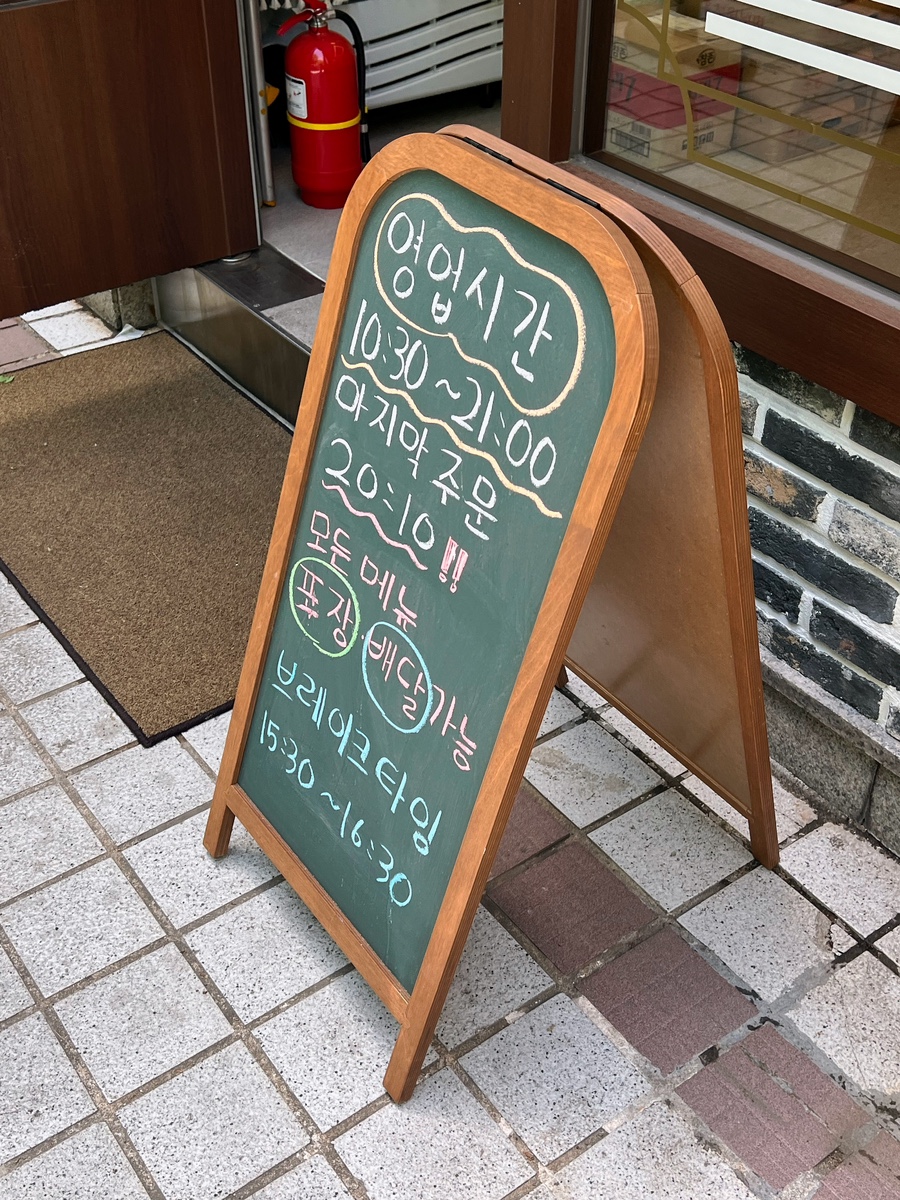 영업시간
10:30 ~21:00
마지막 주문
20:10!!
모든 메뉴
포장 배달가능
브레이크타임
15:30 ~16:30